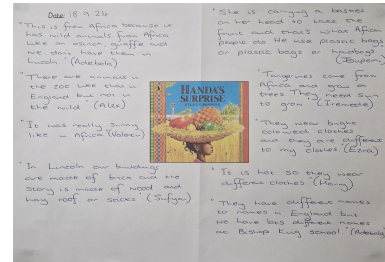 Date: 18.9.24
"This is from Africa because it
has wild animals from Africa
like an ostrich, giraffe and
we don't have them in
Lincoln" (Adebola)
"There are animals in
the zoo like that in
England but not in
the wild" (Alex)
"It was really sunny
like in Africa" (Valeen)
"In Lincoln our buildings
are made of brick and the
story is made of wood and
hay roof or sticks" (Sufyan)
HANDA'S
SURPRISE
"She is carrying a basket
on her head to take the
fruit and that's what African
people do. We use plastic bags
or plastic bags or handbags"
"Tangerines come from
Africa and grow on
trees. They need sun
to grow"
"They wear bright
coloured clothes
and they are different
to my clothes" (Ezra)
"It is hot so they wear
different clothes (Harry)
"They have different names
to names in England but
we have lots different names
at Bishop King school" (Adebola)